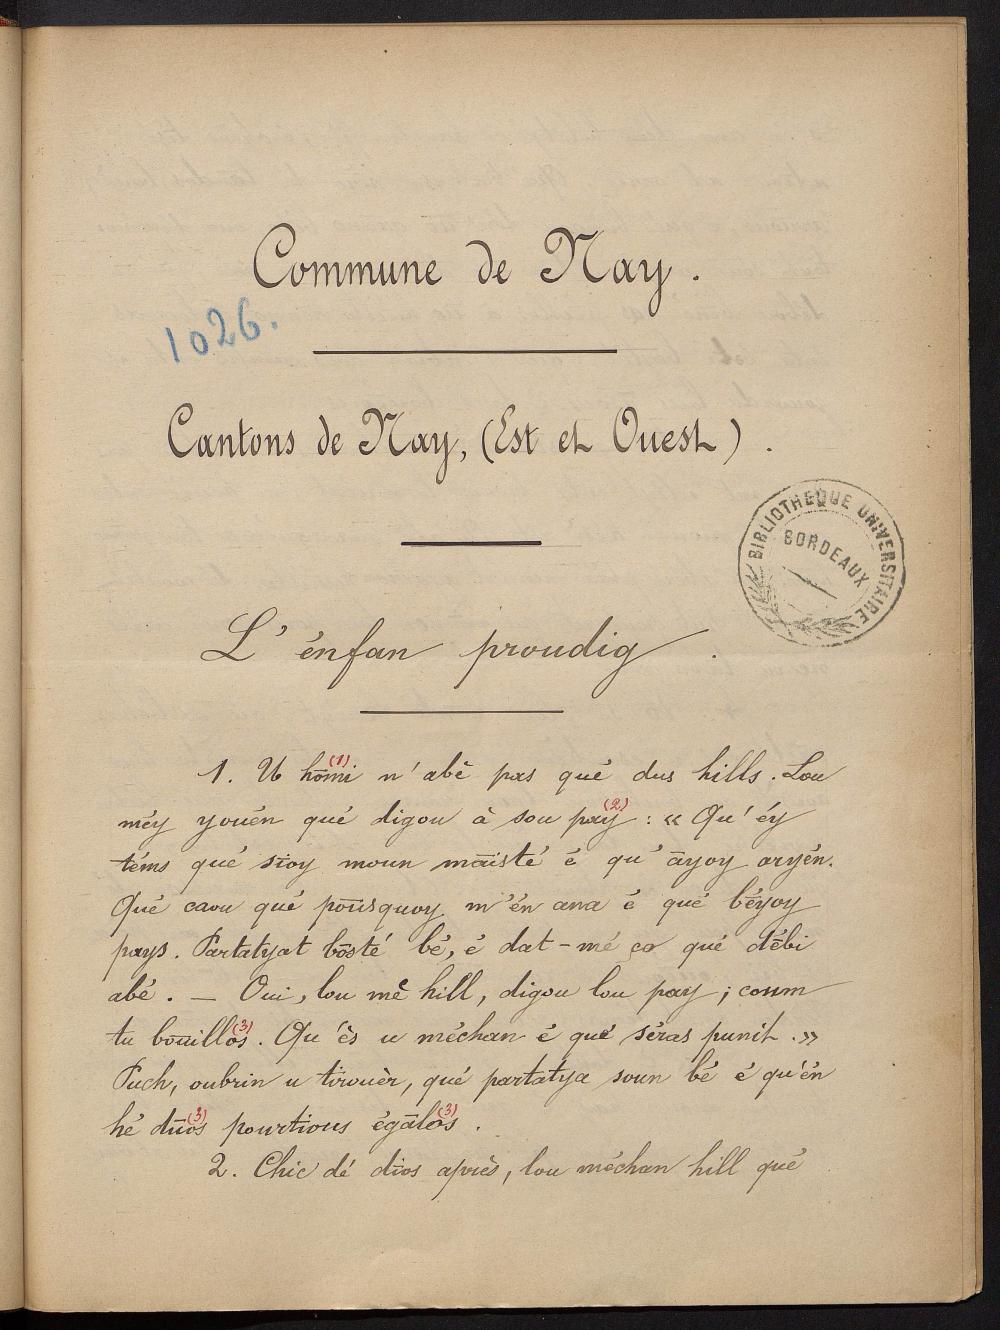 Commune de Nay.
1026.
Cantons de Nay, (Est et Ouest).
BIBLIOTHEQUE UNIVERSITAIRE
BORDEAUX
L'énfan proudig.
1. U hōmi (1) n'abè pas qué dus hills. Lou
méy youén qué digou à sou pay (2) : « Qu'éy
téms qué sīoy moun maïsté é qu'āyoy aryén.
Qué caou qué poūsquoy m'én ana é qué bēyoy
pays. Partatyat bōsté bé, é dat-mé ço qué débi
abé. — Oui, lou mê hill, digou lou pay ; coum
tu bouillōs (3). Qu'ès u méchan é qué séras punit. »
Puch, oubrin u tirouèr, qué partatya soun bé é qu'én
hé dūos (3) pourtious égālōs (3).
2. Chic dé dīos après, lou méchan hill qué